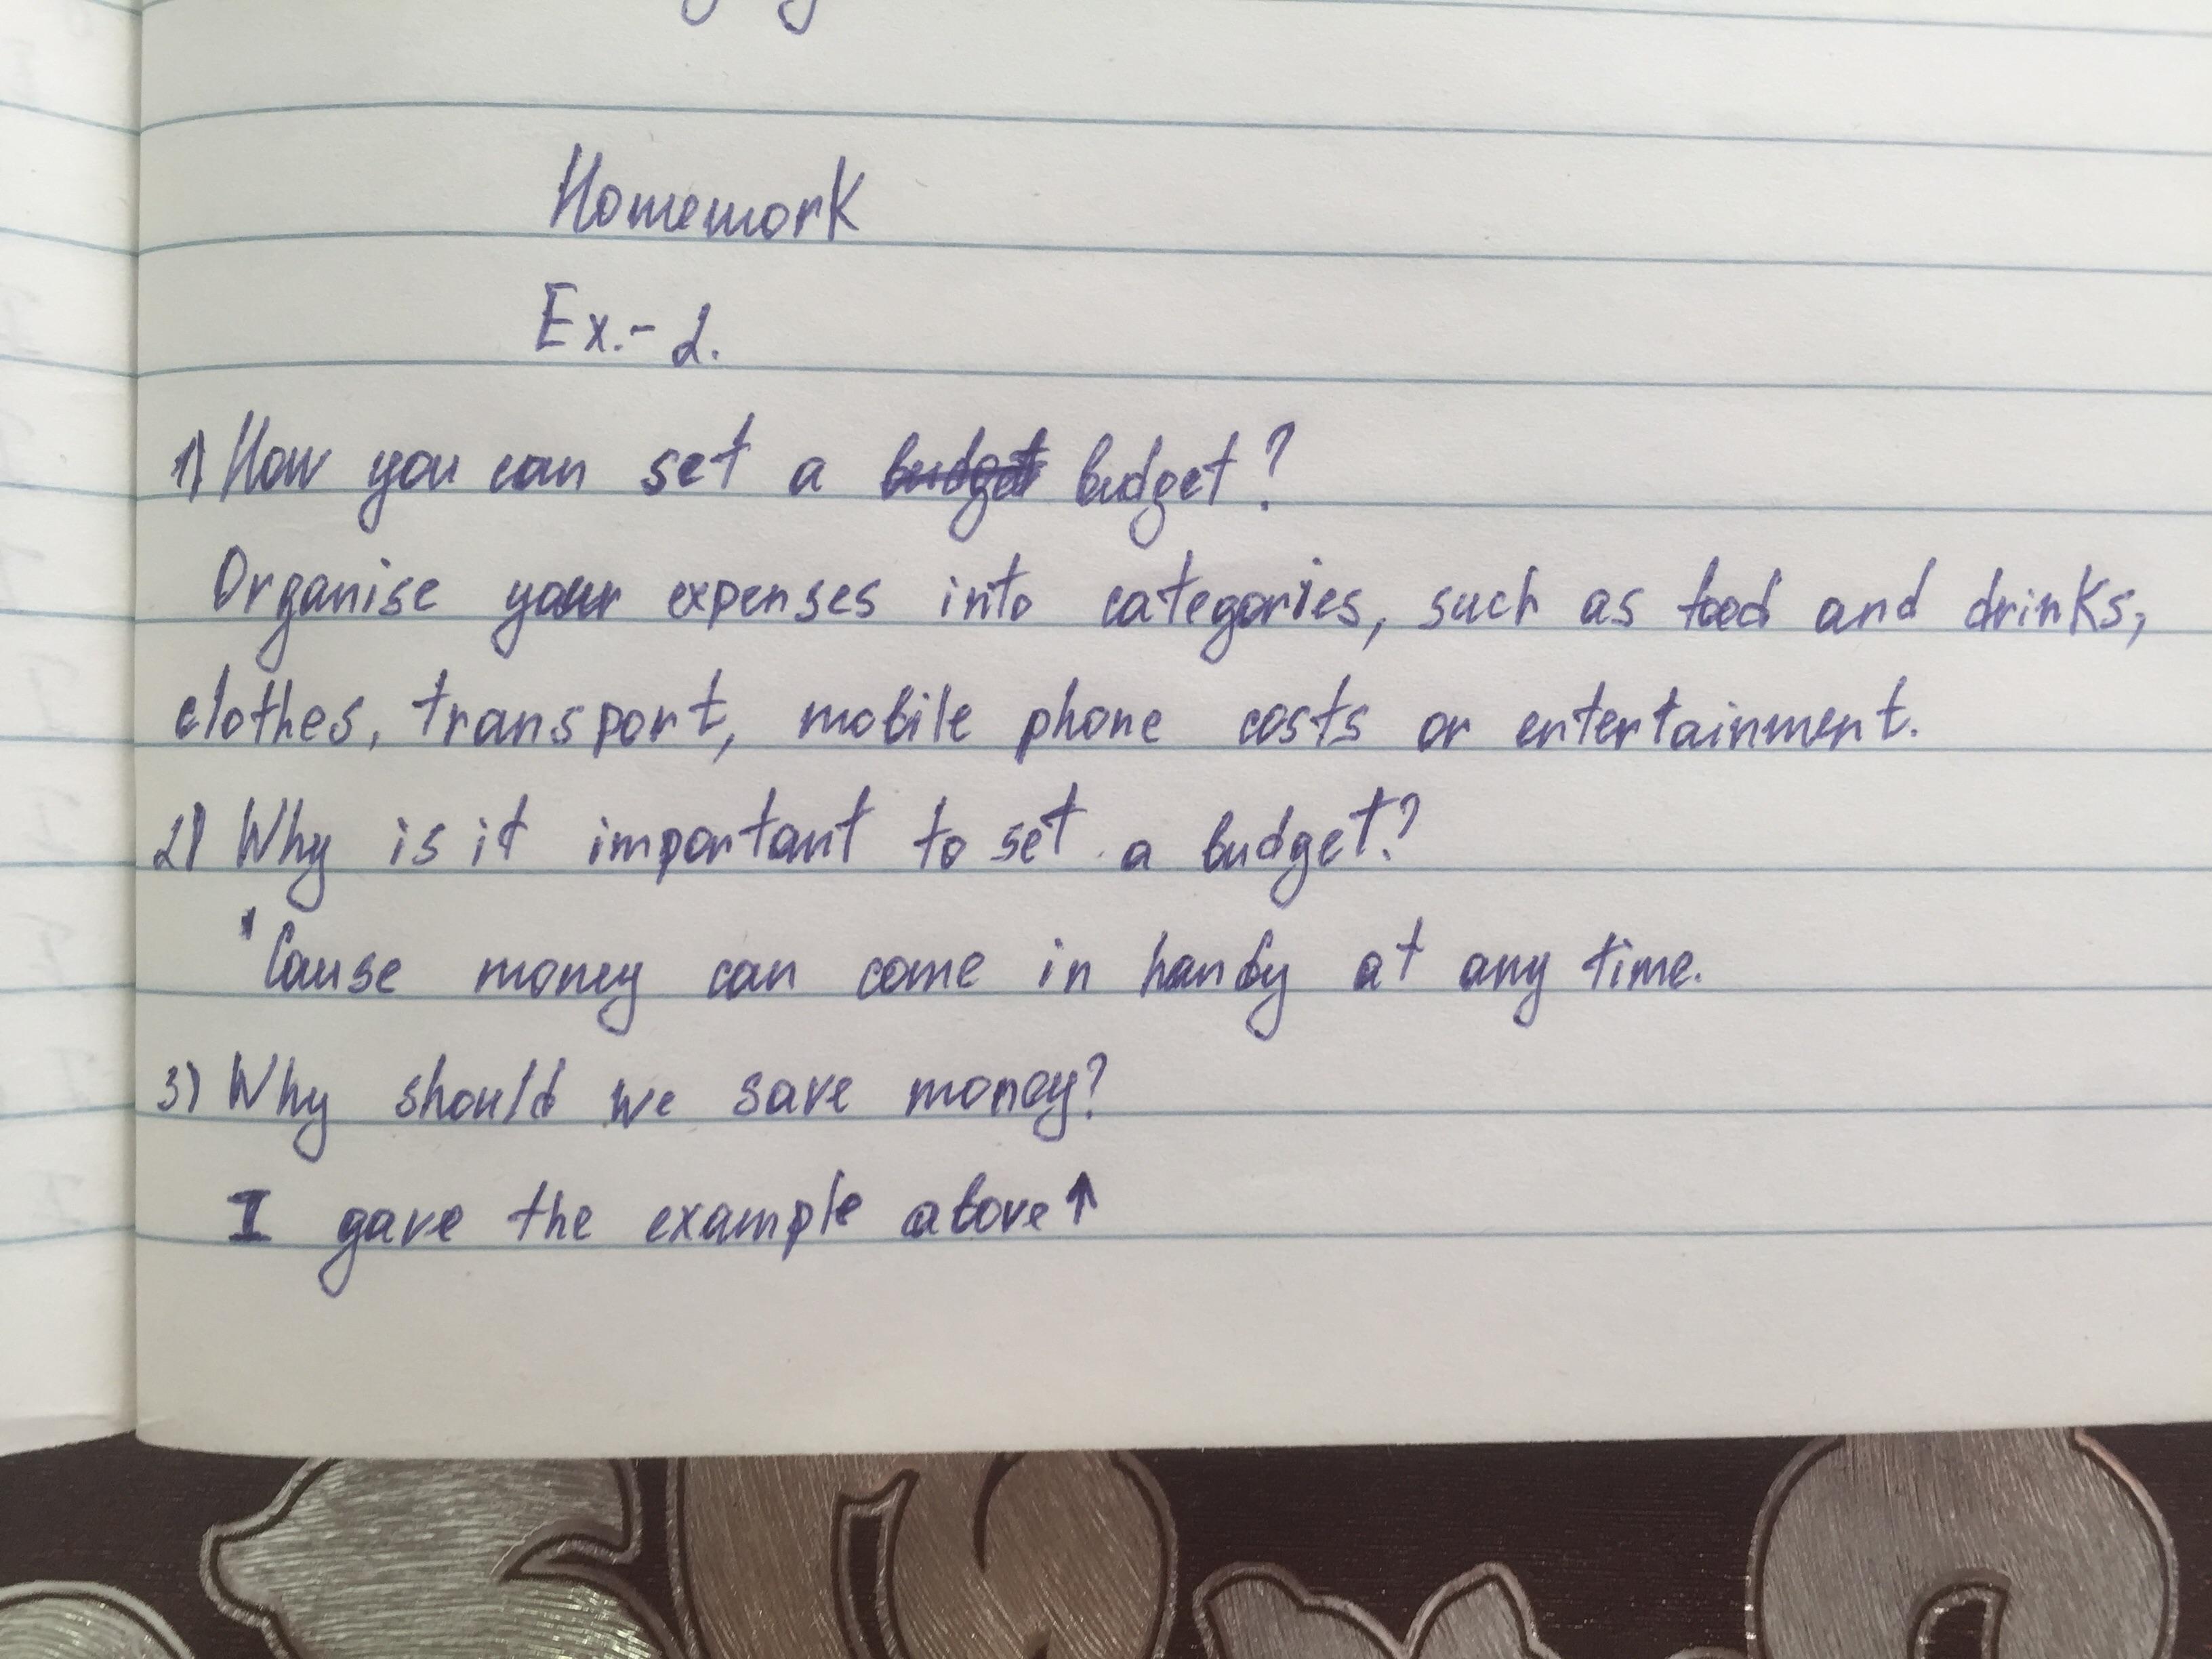 Homework
Ex.- 2.
1) How you can set a budget budget?
Organise your expenses into categories, such as food and drinks,
clothes, transport, mobile phone costs or entertainment.
2) Why is it important to set a budget?
'Cause money can come in handy at any time.
3) Why should we save money?
I gave the example above↑